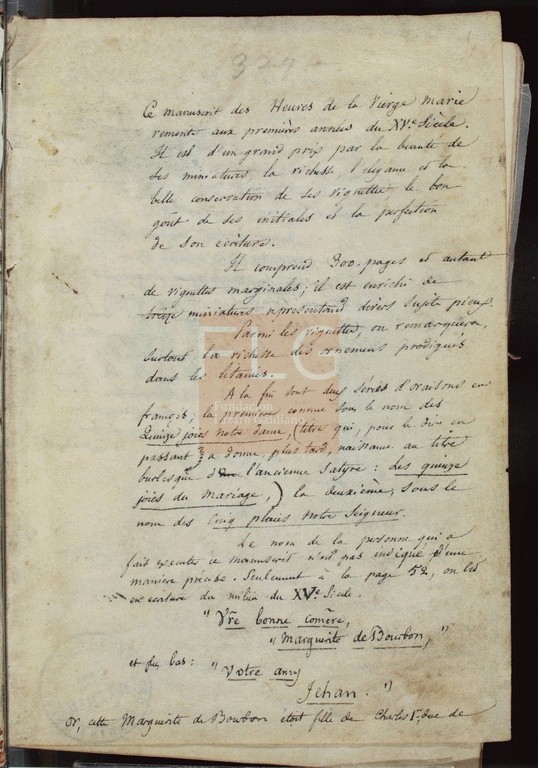 Ce manuscrit des Heures de la Vierge Marie
remonte aux premières années du XVe Siècle.
Il est d'un grand prix par la beauté de
ses miniatures la richesse, l'élégance et la
belle conservation de ses vignettes le bon
goût de ses initiales et la perfection
de son écriture.
Il comprend 300 pages et autant
de vignettes marginales; il est enrichi de
treize miniatures représentant divers sujets pieux.
Parmi les vignettes, on remarquera,
surtout la richesse des ornemens prodigués
dans les létanies.
A la fin sont deux séries d'oraisons en
françois; la première connue sous le nom des
Quinze joies notre dame, (titre qui, pour le dire en
passant a donné, plus tard, naissance au titre
burlesque de l'ancienne Satyre: Les quinze
joies du Mariage,) la deuxième, sous le
nom des Cinq plaies notre Seigneur.
Le nom de la personne qui a
fait exécuter ce manuscrit n'est pas indiqué d'une
manière précise. Seulement à la page 52, on lit
en écriture du milieu du XVe Siècle.
"Vre bonne comère,
"Marguerite de Bourbon,"
et plus bas: "Votre amy
Jehan."
Or, cette Marguerite de Bourbon étoit fille de Charles 1er, duc de
FLG
Fundación
Lázaro Galdiano